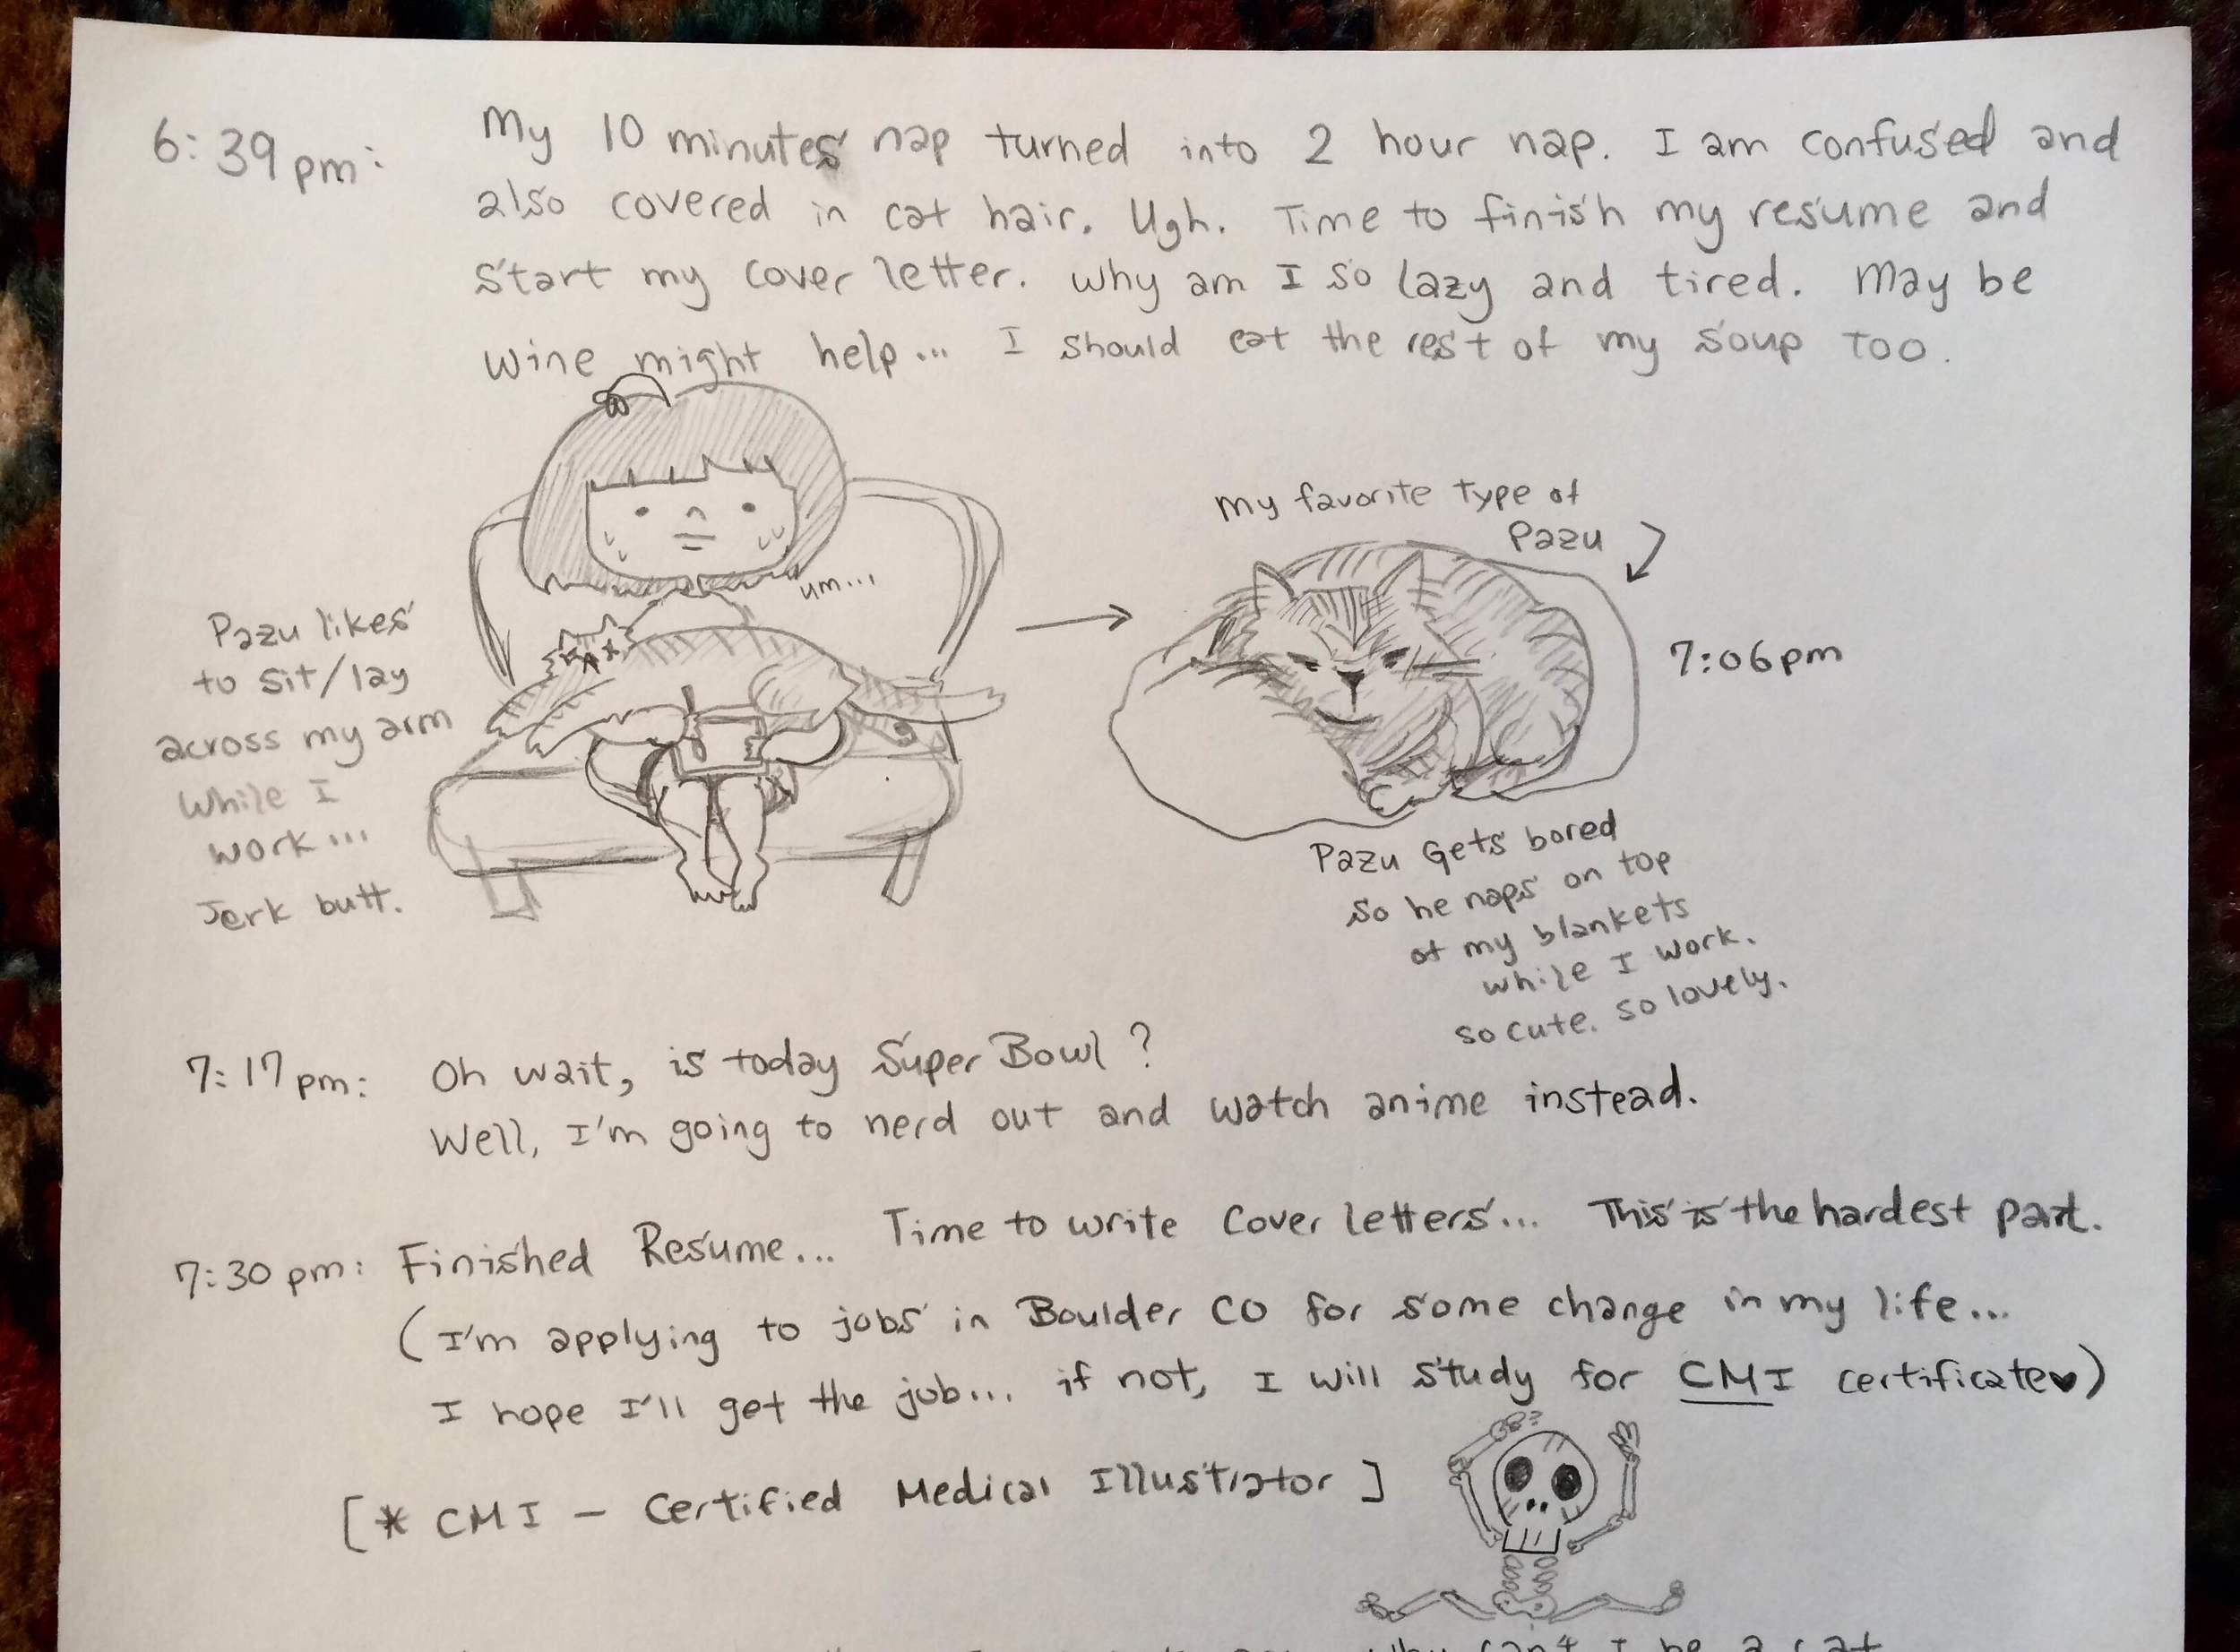 6:39pm: My 10 minutes nap turned into 2 hour nap. I am confused and
also covered in cat hair. Ugh. Time to finish my resume and
start my cover letter. Why am I so lazy and tired. May be
wine might help... I should eat the rest of my soup too.
um...
Pazu likes
to sit/lay
across my arm
while I
work...
Jerk butt.
my favorite type of
Pazu
7:06pm
Pazu gets bored
so he naps on top
of my blankets
while I work.
so cute. so lovely.
7:17pm: Oh wait, is today Super Bowl?
Well, I'm going to nerd out and watch anime instead.
7:30pm: Finished Resume... Time to write cover letters... This is the hardest part.
(I'm applying to jobs in Boulder CO for some change in my life...
I hope I'll get the job... if not, I will study for CMI certificate♥)
[* CMI - Certified Medical Illustrator]
why can't I be a cat